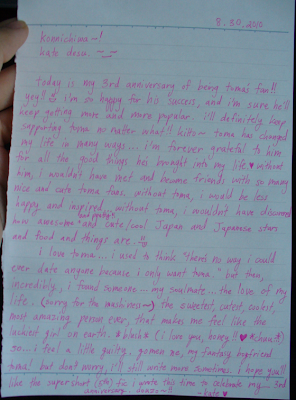 8.30.2010
Konnichiwa~!
kate desu. ^_^
today is my 3rd anniversary of being toma's fan!!
yey!! i'm so happy for his success, and i'm sure he'll
keep getting more and more popular. i'll definitely keep
supporting toma no matter what!! kike~ toma has changed
my life in many ways... i'm forever grateful to him
for all the good things he's brought into my life ♥ without
him, i wouldn't have met and become friends with so many
nice and cute toma fans, without toma, i would be less
happy and inspired, without toma, i wouldn't have discovered
how awesome and quirky and cute/cool Japan and Japanese stars
and food and things are.
i love toma... i used to think "there's no way i could
ever date anyone because i only want toma." but then,
incredibly, i found someone... my soulmate... the love of my
life (sorry for the mushiness~) the sweetest, cutest, coolest,
most amazing person ever, that makes me feel like the
luckiest girl on earth. *blush* (i love you, honey!! ♥ )
so... i feel a little guilty. gomen ne, my fantasy boyfriend
toma! but don't worry, i'll still write more sometimes. i hope you'll
like the supershort fic i wrote this time to celebrate my... 3rd
anniversary
~kate ♥